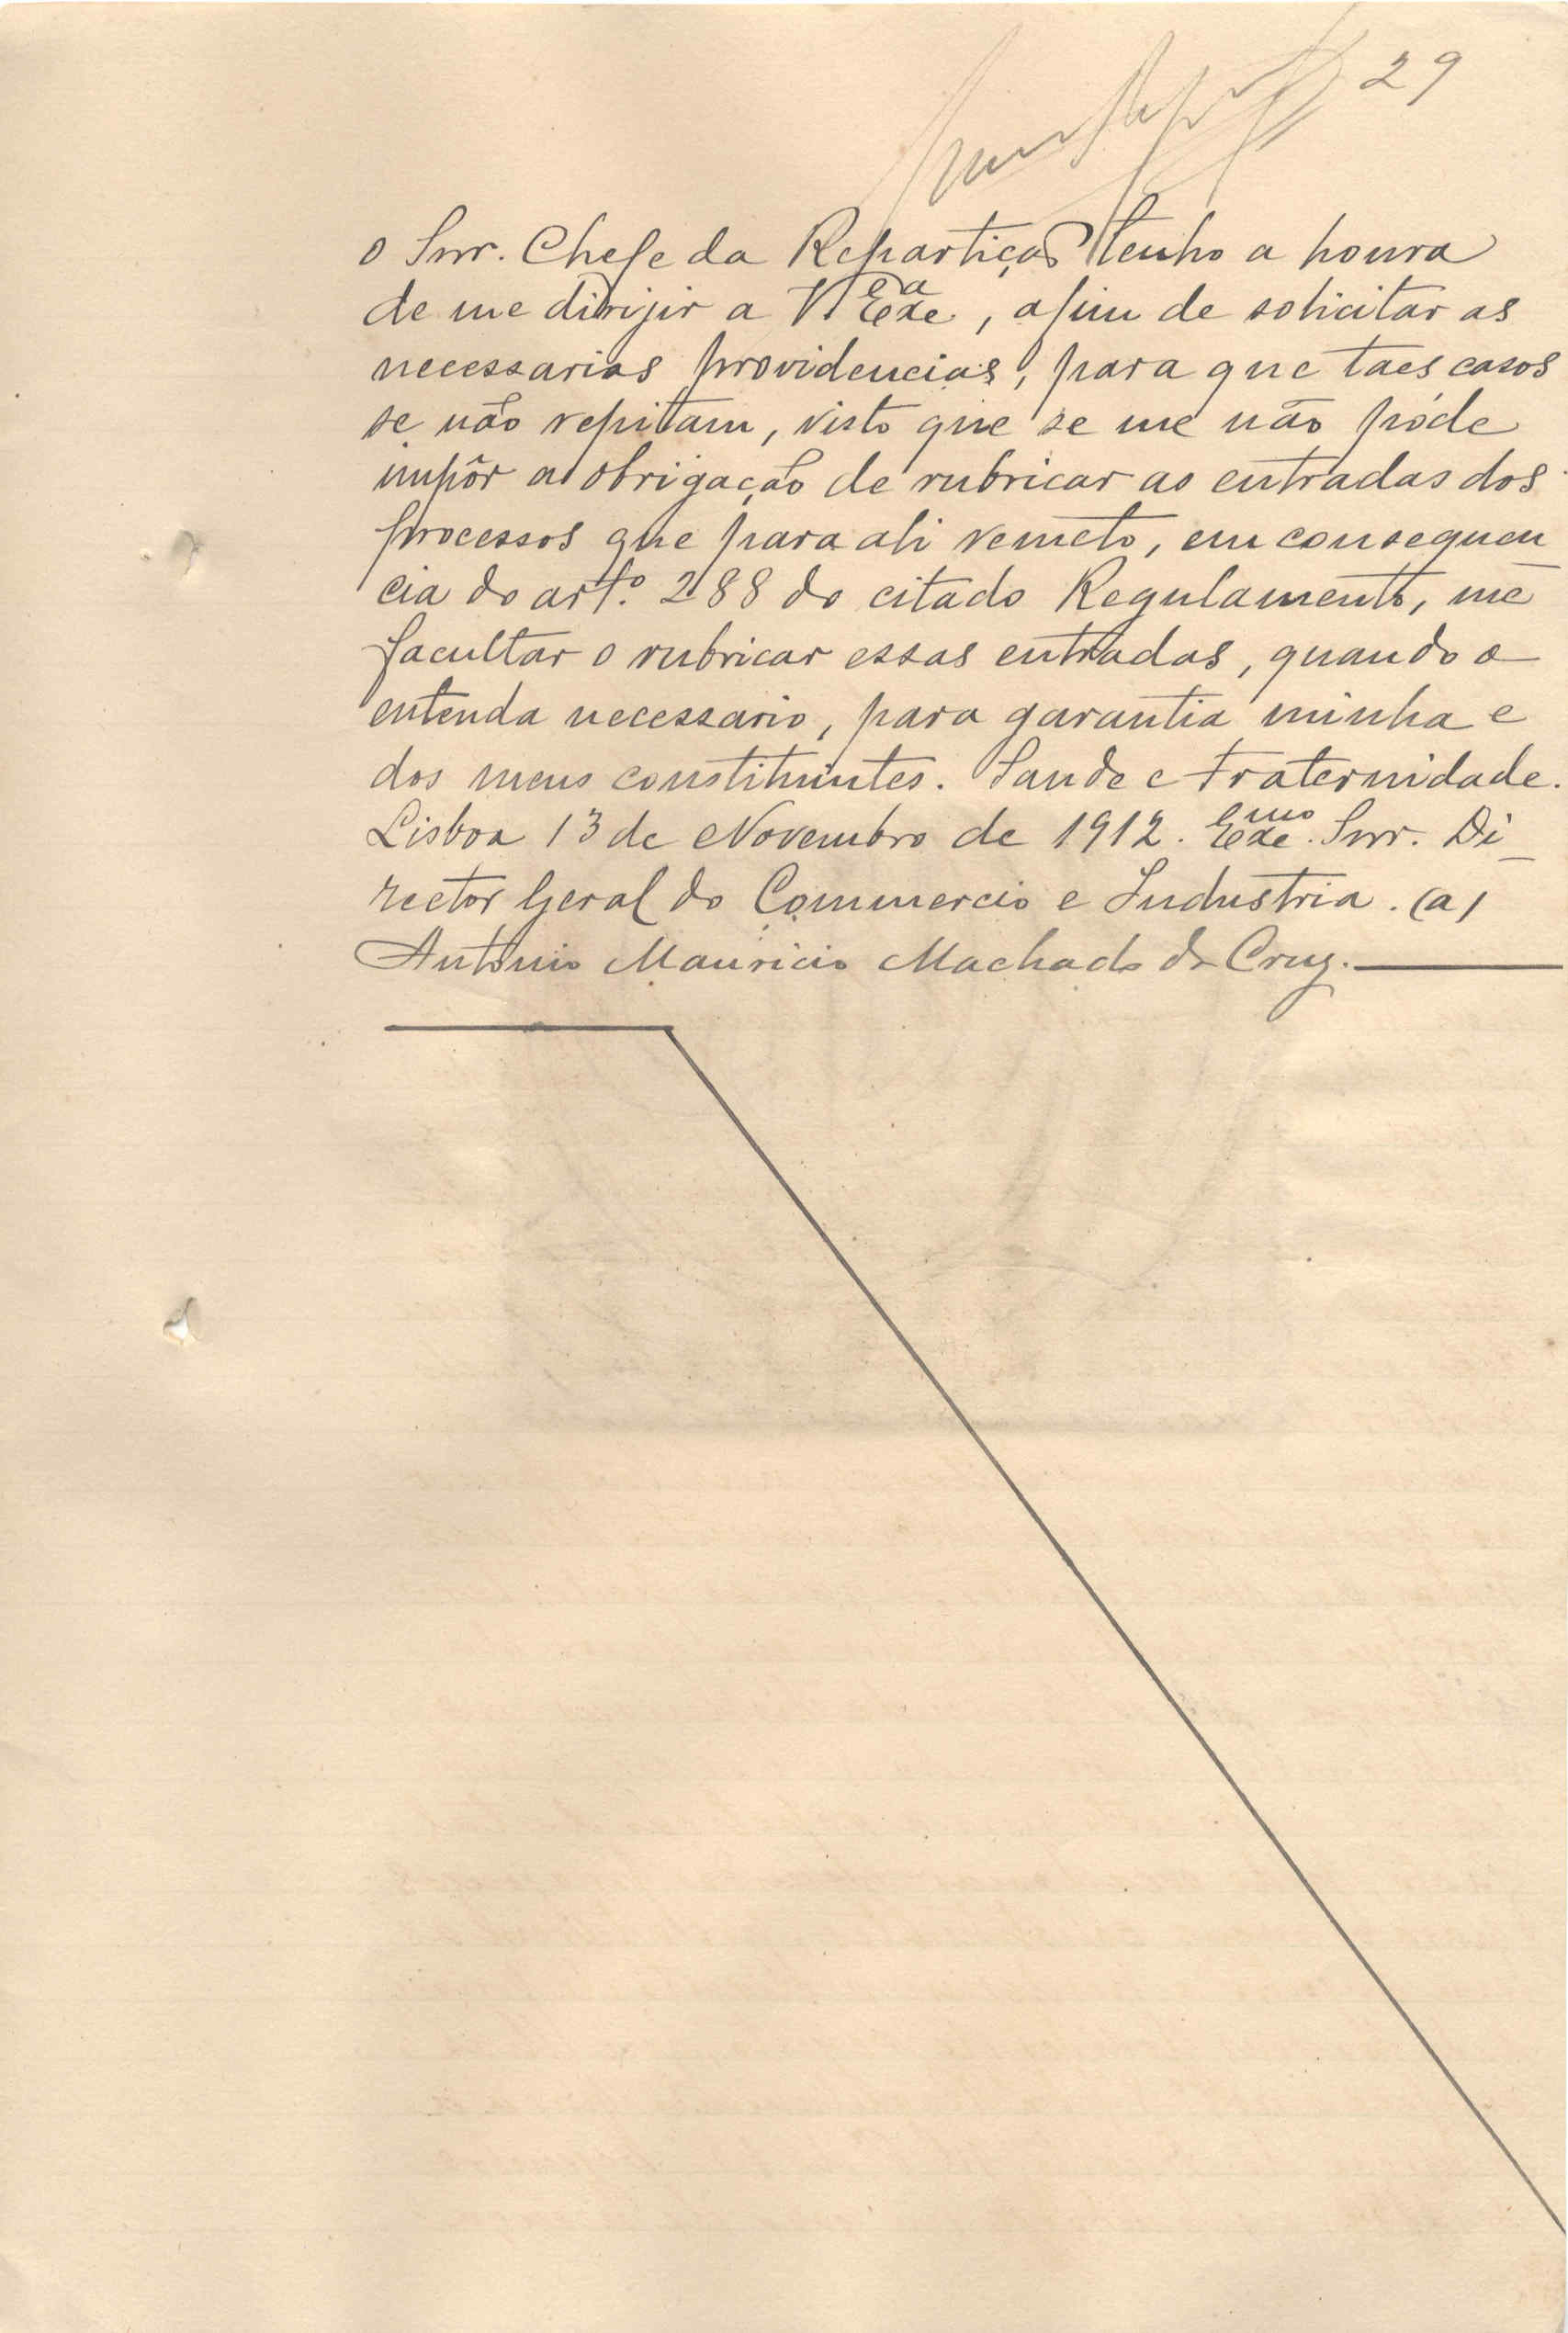 29
o Snr. Chefe da Repartição tenho a honra
de me dirijir a V. Exc.ª, afim de solicitar as
necessarias providencias, para que taes casos
se não repitam, visto que se me não póde
impôr a obrigação de rubricar as entradas dos
processos que para ali remeto, em consequen
cia do artº. 288 do citado Regulamento, me
facultar o rubricar essas entradas, quando o
entenda necessario, para garantia minha e
dos meus constituintes. Saude e Fraternidade.
Lisboa 13 de Novembro de 1912. Exc.mo Snr. Di-
rector Geral do Commercio e Industria. (a)
Antonio Mauricio Machado da Cruz.